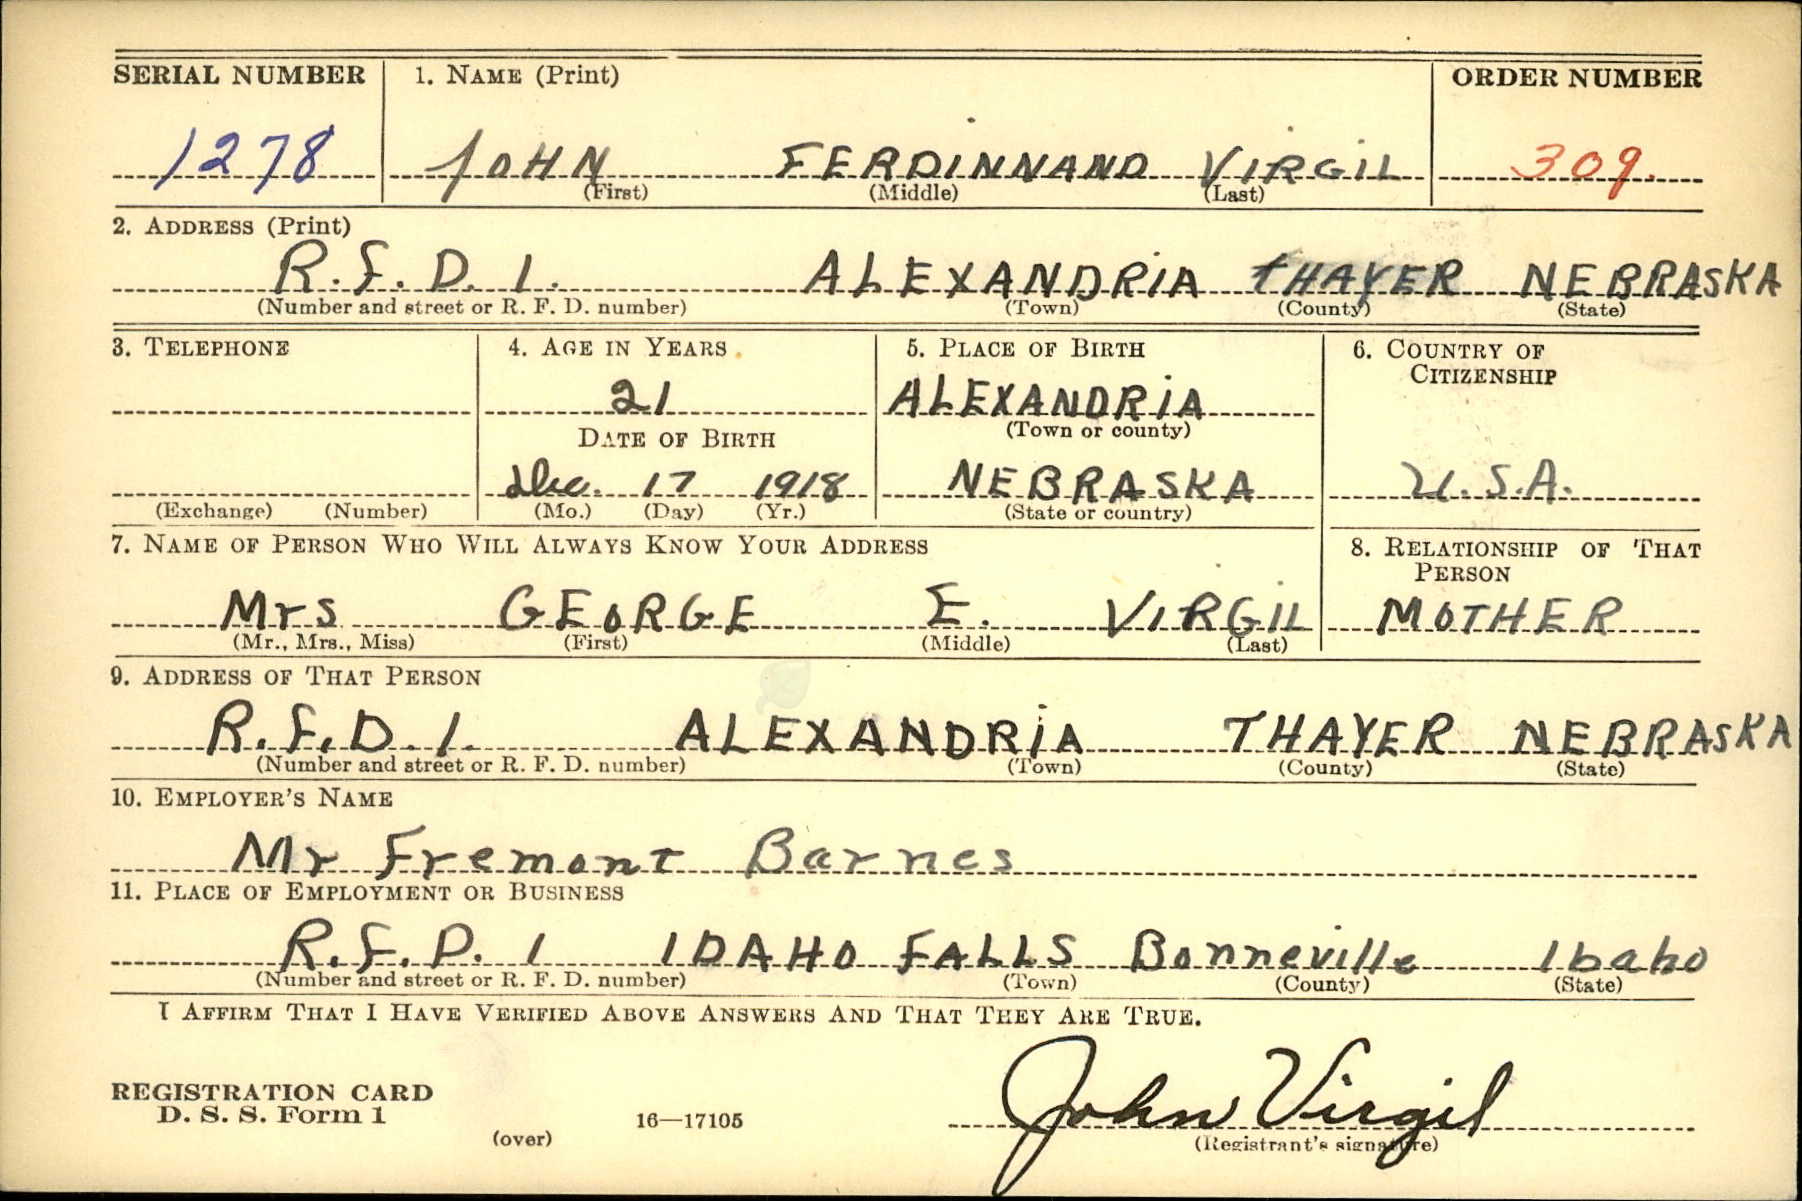 SERIAL NUMBER 1. NAME (Print) ORDER NUMBER
1278 JOHN FERDINNAND VIRGIL 309.
(First) (Middle) (Last)
2. ADDRESS (Print)
R.F.D. 1. ALEXANDRIA THAYER NEBRASKA
(Number and street or R. F. D. number) (Town) (County) (State)
3. TELEPHONE 4. AGE IN YEARS 5. PLACE OF BIRTH 6. COUNTRY OF
CITIZENSHIP
21 ALEXANDRIA
DATE OF BIRTH (Town or county)
Dec. 17 1918 NEBRASKA U.S.A.
(Exchange) (Number) (Mo.) (Day) (Yr.) (State or country)
7. NAME OF PERSON WHO WILL ALWAYS KNOW YOUR ADDRESS 8. RELATIONSHIP OF THAT
PERSON
Mrs GEORGE E. VIRGIL MOTHER
(Mr., Mrs., Miss) (First) (Middle) (Last)
9. ADDRESS OF THAT PERSON
R.F.D. 1. ALEXANDRIA THAYER NEBRASKA
(Number and street or R. F. D. number) (Town) (County) (State)
10. EMPLOYER'S NAME
Mr Fremont Barnes
11. PLACE OF EMPLOYMENT OR BUSINESS
R.F.D. 1 IDAHO FALLS Bonneville Idaho
(Number and street or R. F. D. number) (Town) (County) (State)
I AFFIRM THAT I HAVE VERIFIED ABOVE ANSWERS AND THAT THEY ARE TRUE.
John Virgil
REGISTRATION CARD
D. S. S. Form 1 16—17105
(over) (Registrant's signature)